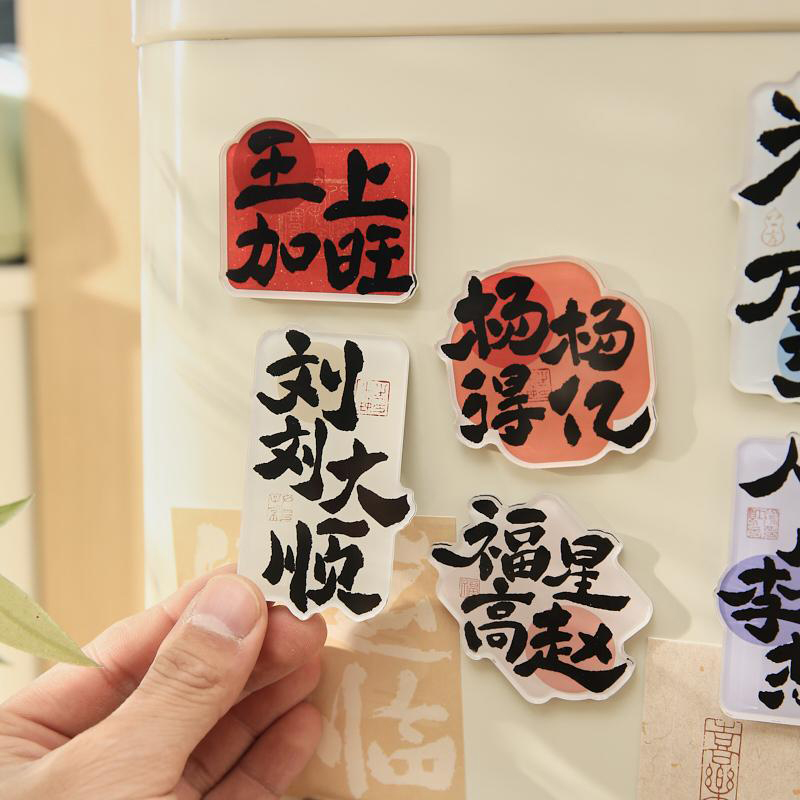 王上
加旺
杨杨
得亿
刘
刘大
顺
福星
高赵
李
临
喜樂